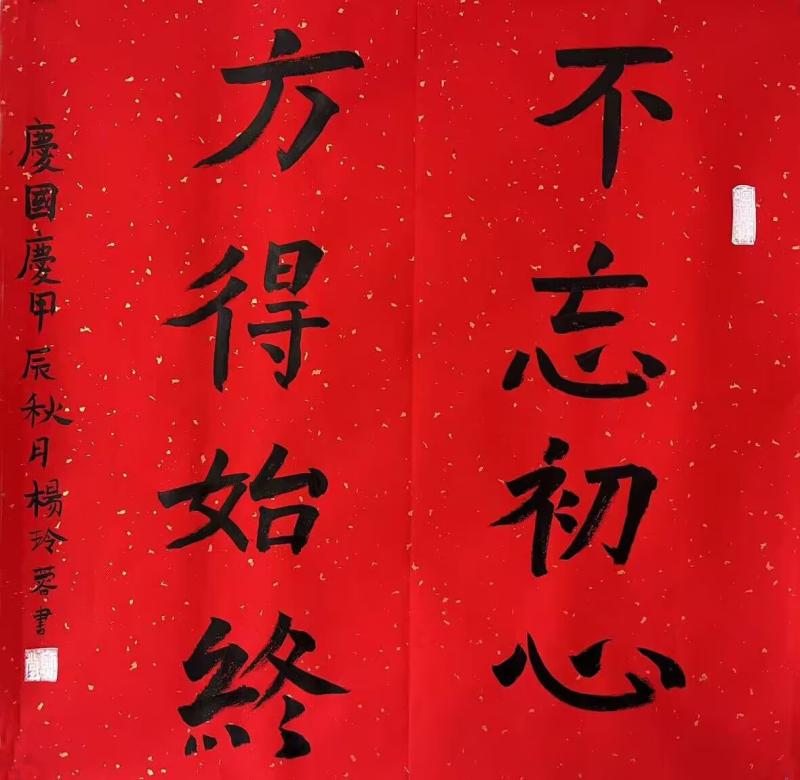 不忘初心
方得始終
慶國慶甲辰秋月楊玲蓉書